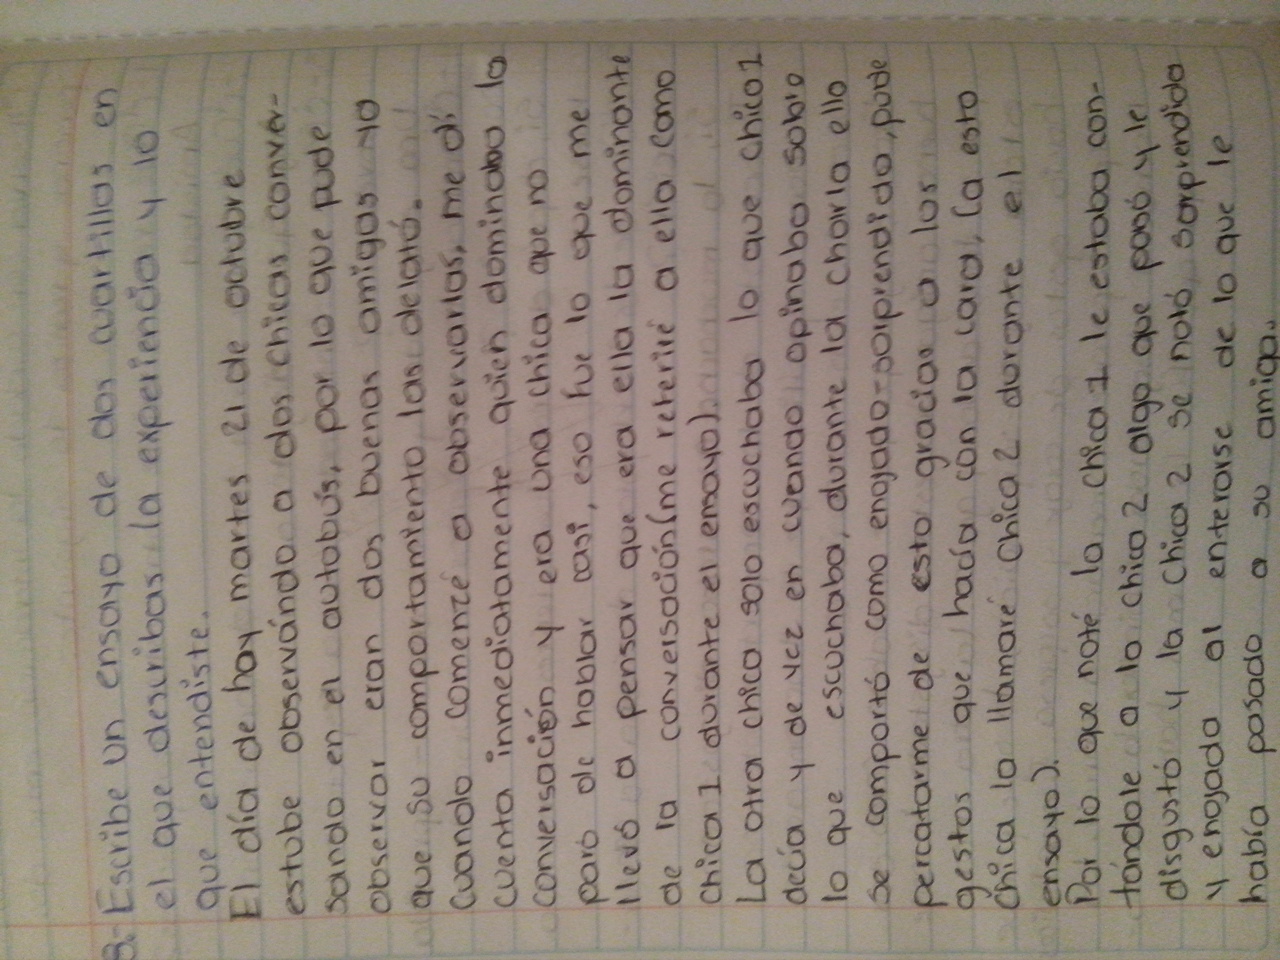 8.- Escribe un ensayo de dos cuartillas en
el que describas la experiencia y lo
que entendiste.
El día de hoy martes 21 de octubre
estube observándo a dos chicas conver-
sando en el autobús, por lo que pude
observar eran dos buenas amigas ya
que su comportamiento las delató.
Cuando comenzé a observarlas, me dí
cuenta inmediatamente quien dominaba la
conversación y era una chica que no
paró de hablar casi, eso fue lo que me
llevó a pensar que era ella la dominante
de la conversación (me referiré a ella como
chica 1 durante el ensayo).
La otra chica solo escuchaba lo que chica 1
decía y de vez en cuando opinaba sobre
lo que escuchaba, durante la charla ella
se comportó como enojada-sorprendida, pude
percatarme de esto gracias a los
gestos que hacía con la cara, (a esta
chica la llamaré chica 2 durante el
ensayo).
Por lo que noté la chica 1 le estaba con-
tándole a la chica 2 algo que pasó y le
disgustó y la chica 2 se notó sorprendida
y enojada al enterarse de lo que le
había pasado a su amiga.